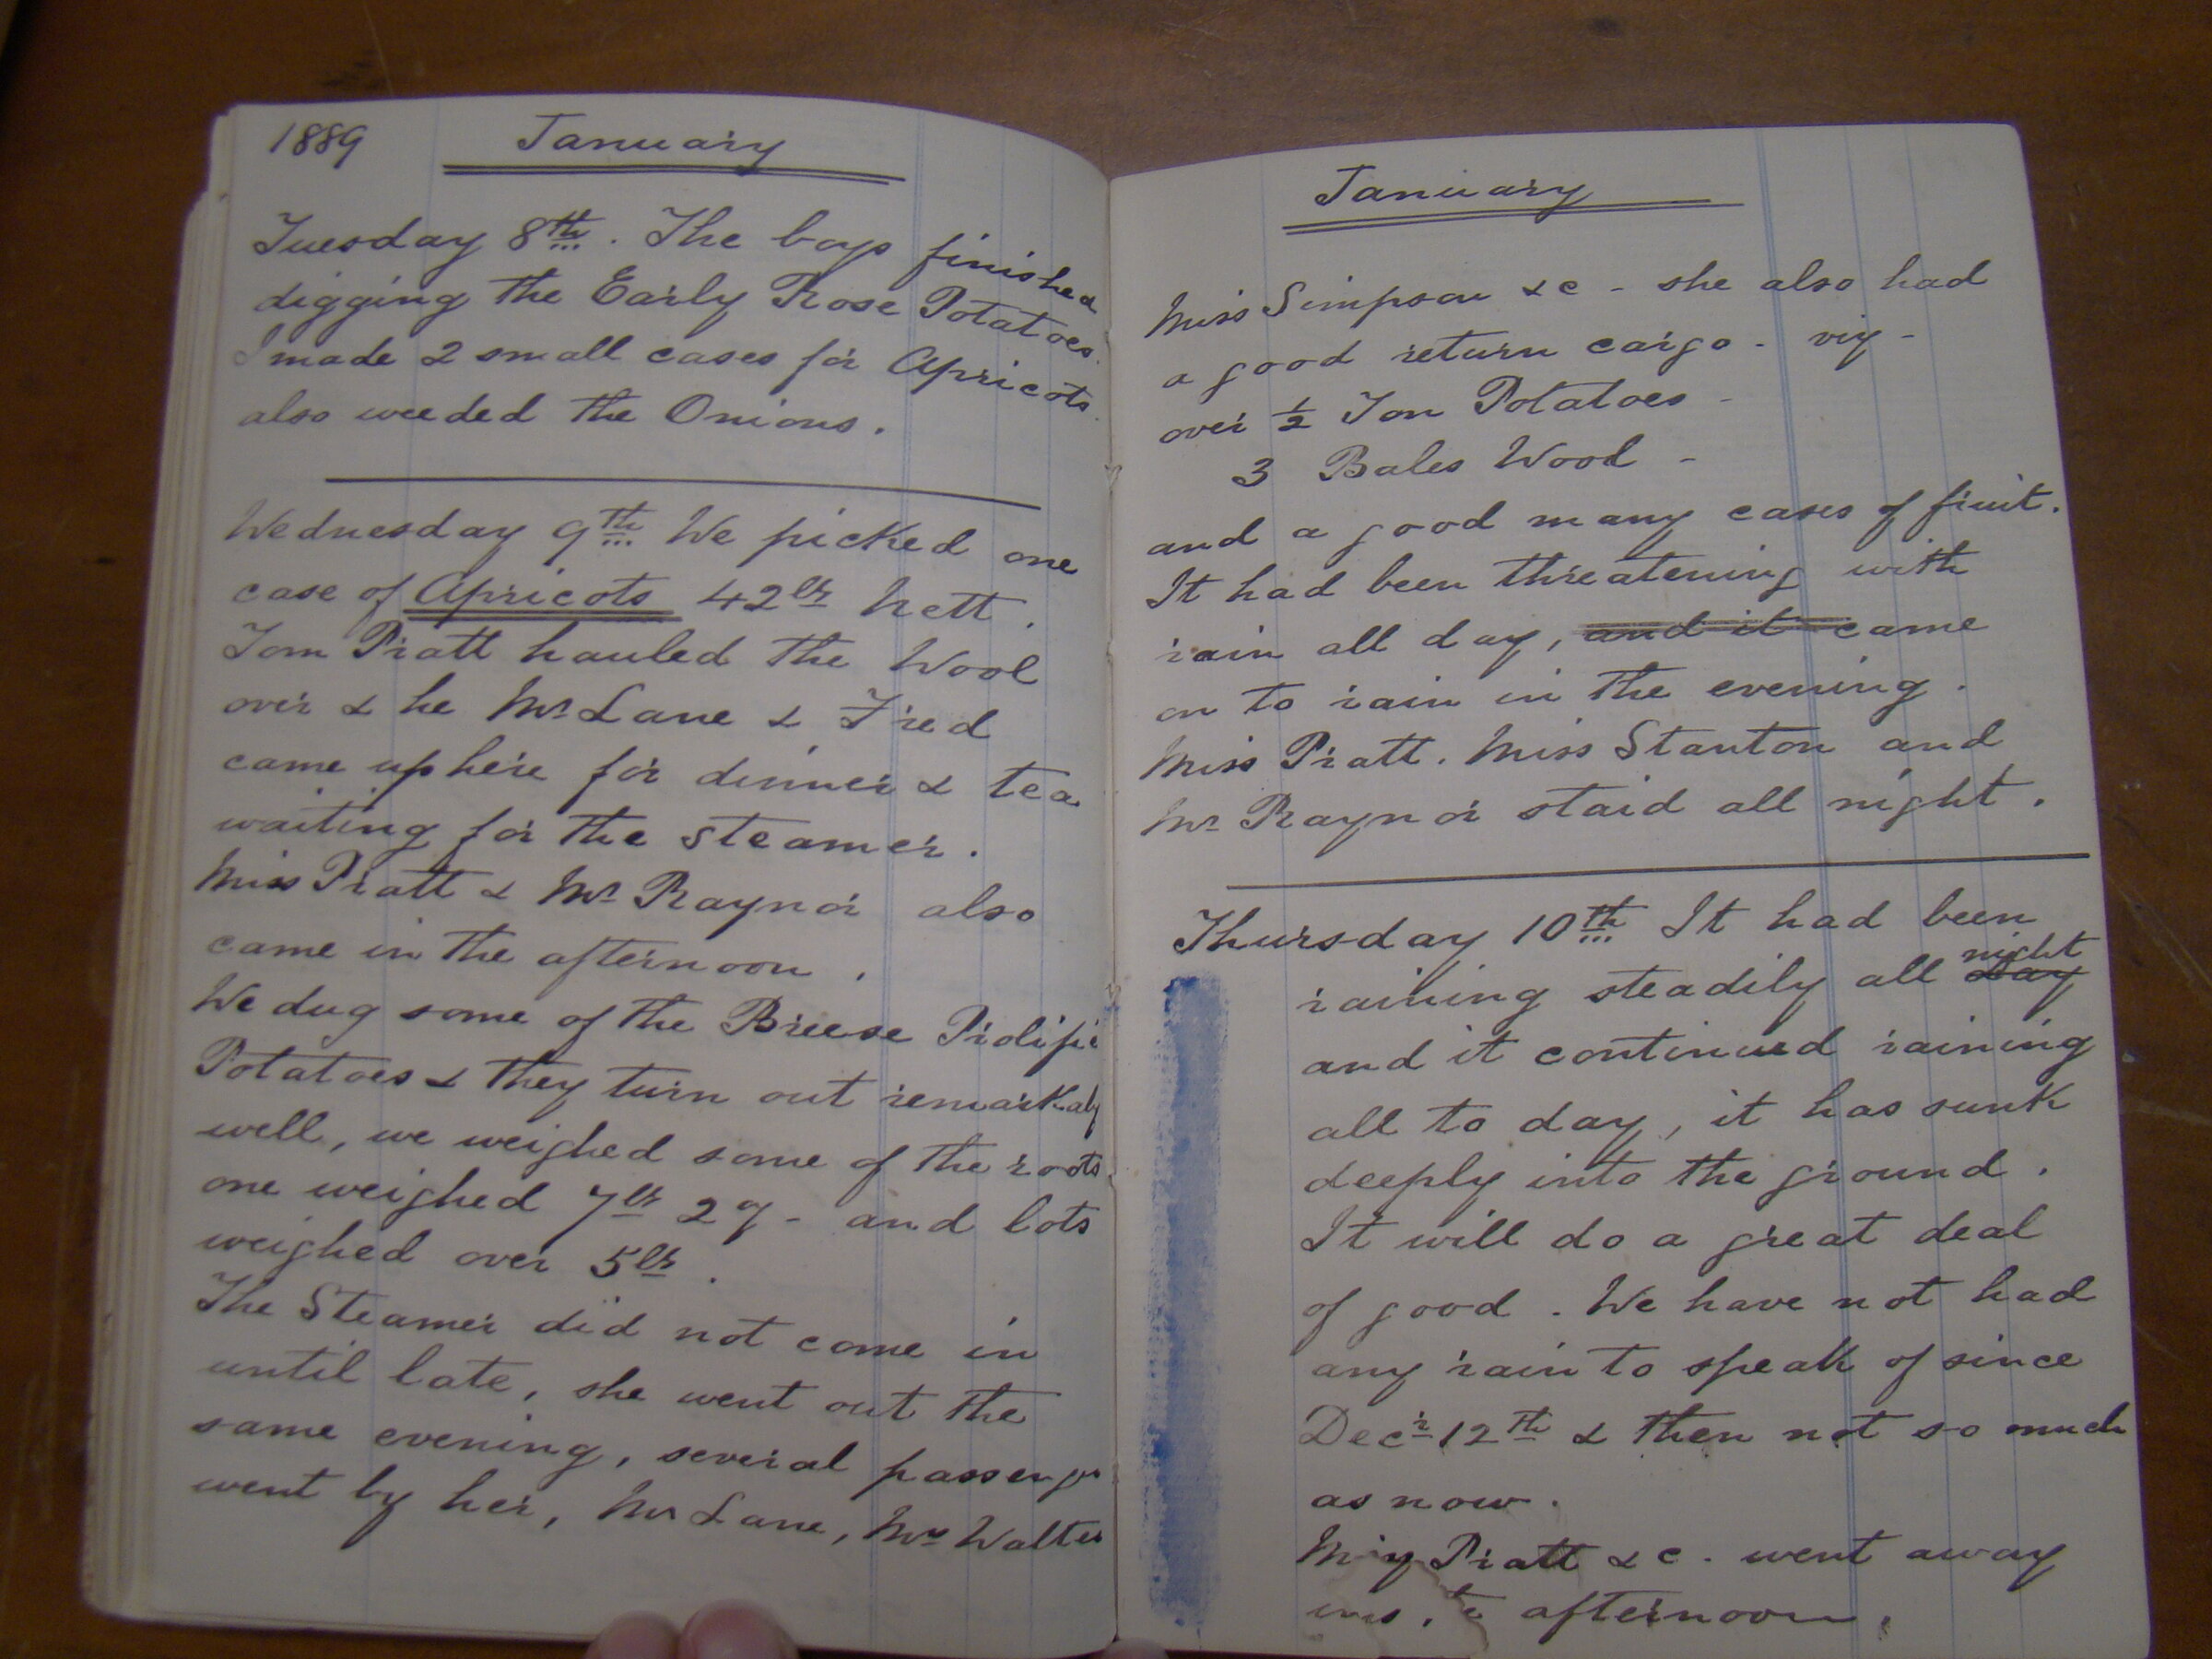 1889 January
Tuesday 8th. The boys finished
digging the Early Rose Potatoes.
I made 2 small cases for Apricots.
also weeded the Onions.
Wednesday 9th We picked one
case of Apricots 42lbs nett.
Tom Pratt hauled the Wool
over & he Mr Lane & Fred
came up here for dinner & tea
waiting for the steamer.
Miss Pratt & Mr Raynor also
came in the afternoon.
We dug some of the Breese Prolific
Potatoes & they turn out remarkably
well, we weighed some of the roots
one weighed 7lb 2oz - and lots
weighed over 5lbs.
The Steamer did not come in
until late, she went out the
same evening, several passengers
went by her, Mr Lane, Mrs Walter
January
Miss Simpson &c - she also had
a good return cargo - viz -
over 1/2 Ton Potatoes -
3 Bales Wool -
and a good many cases of fruit.
It had been threatening with
rain all day, and it came
on to rain in the evening.
Miss Pratt. Miss Stanton and
Mr Raynor staid all night.
Thursday 10th It had been
raining steadily all day night
and it continued raining
all to day, it has sunk
deeply into the ground.
It will do a great deal
of good. We have not had
any rain to speak of since
Decr 12th & then not so much
as now.
Pratt &c. went away
afternoon.